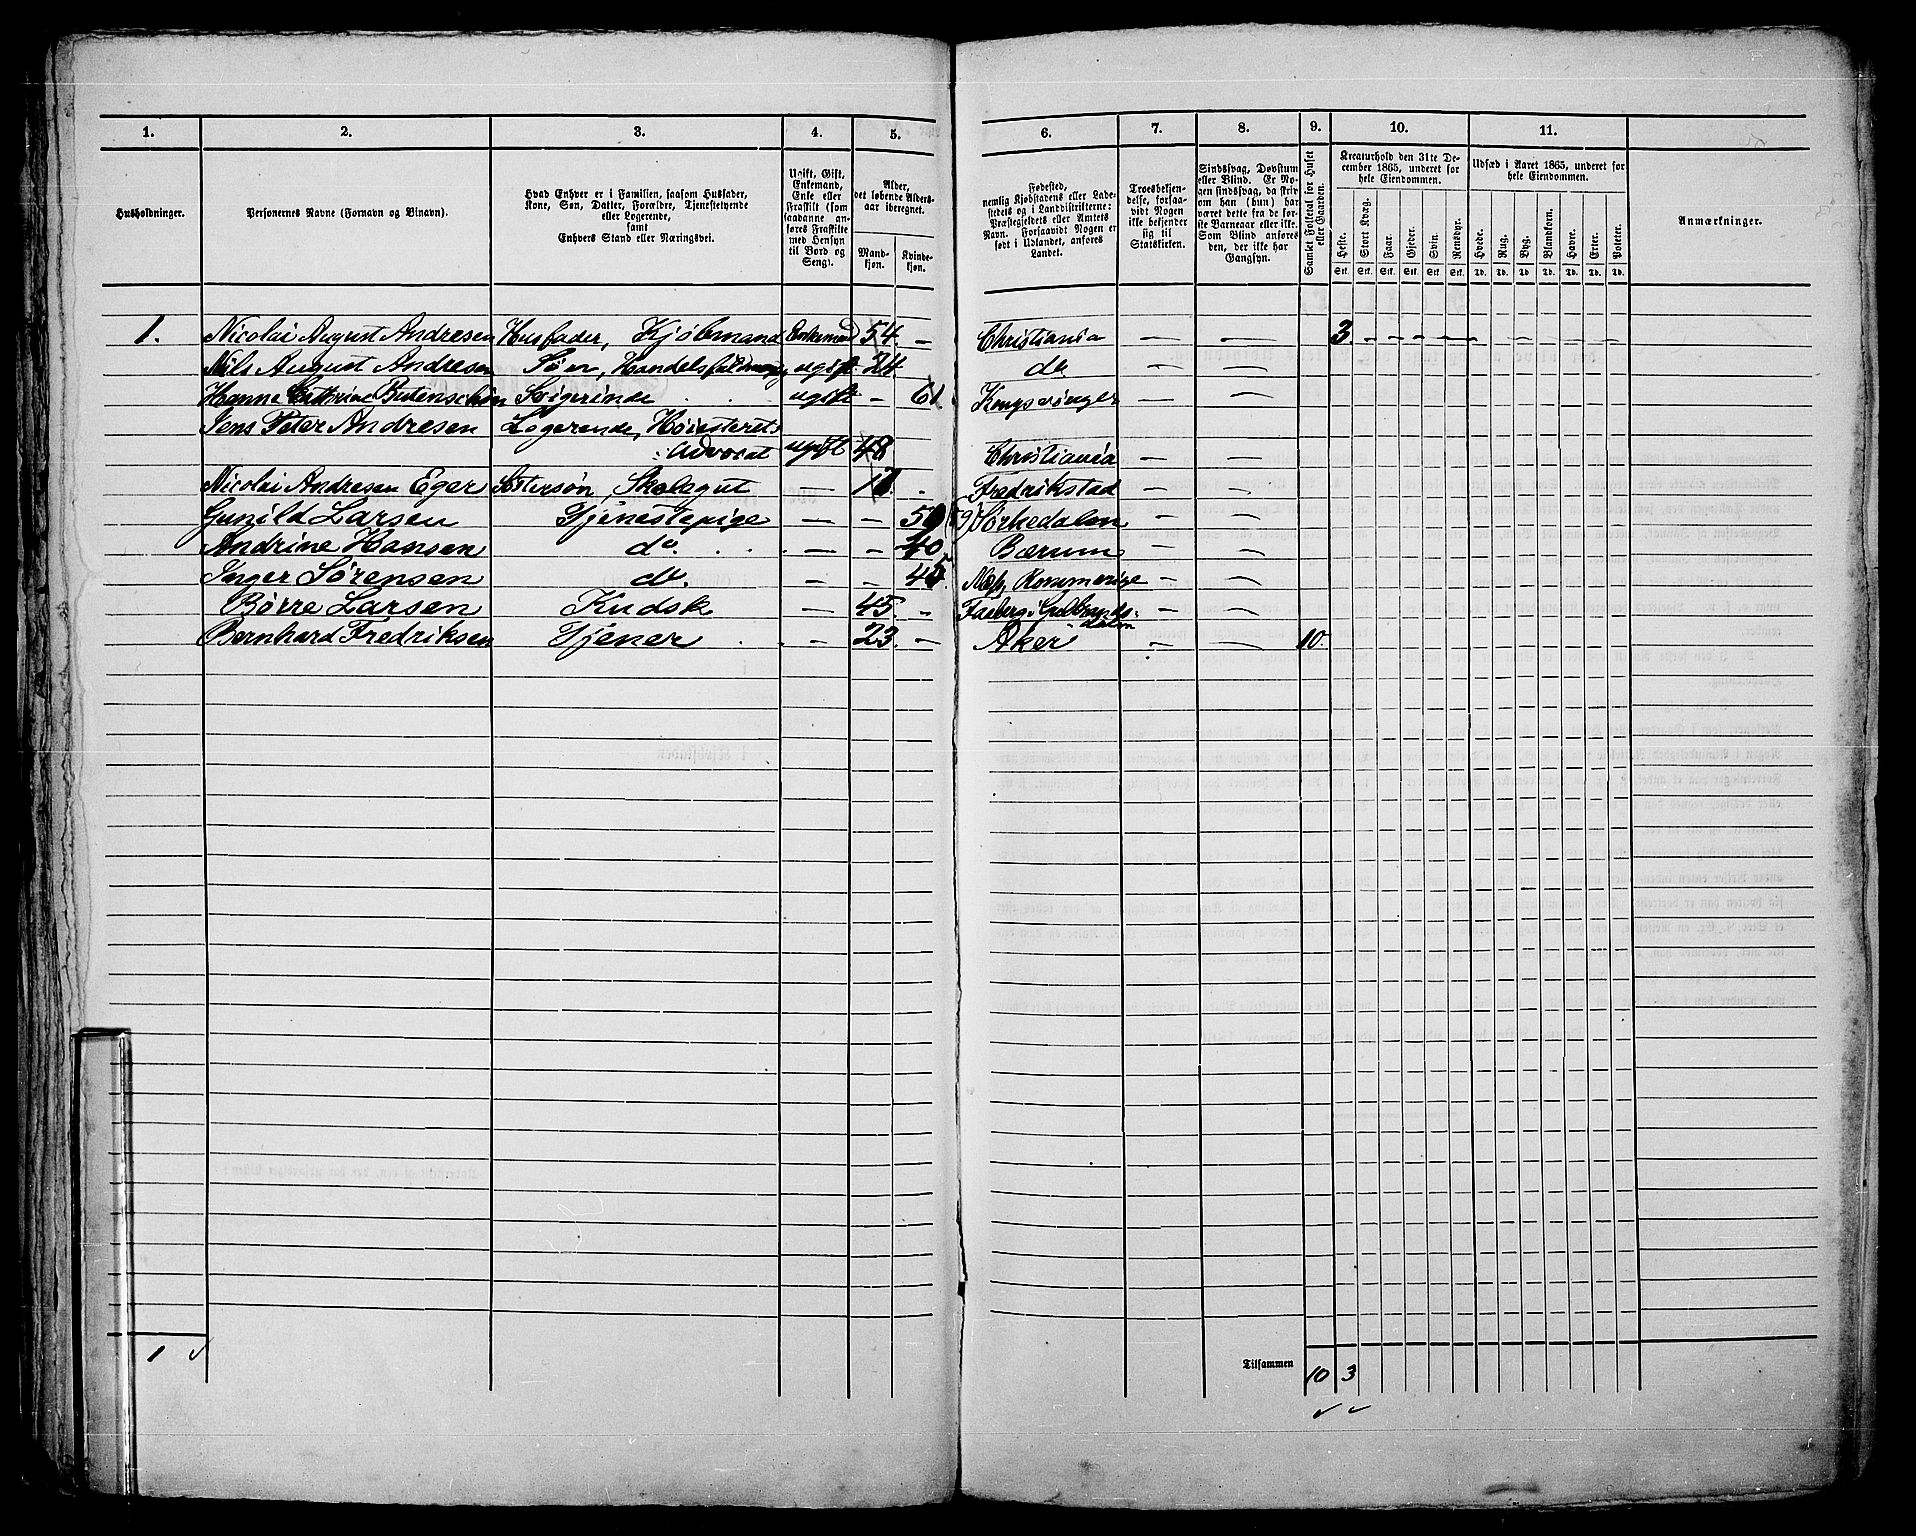 1.
2.
3.
4.
5.
6.
7.
8.
9.
10.
11.
Husholdninger.
Personernes Navne (Fornavn og Binavn).
Hvad Enhver er i Familien, saasom Husfader,
Kone, Søn, Datter, Forældre, Tjenestetyende
eller Logerende,
samt
Enhvers Stand eller Næringsvei.
Ugift, Gift,
Enkemand,
Enke eller
Fraskilt (som
saadanne an-
føres Fraskilte
med Hensyn
til Bord og
Seng).
Alder,
det løbende Alders-
aar iberegnet.
Mand-
kjøn.
Kvinde-
kjøn.
Fødested,
nemlig Kjøbstadens eller Lade-
stedets og i Landdistrikterne:
Præstegjeldets eller Amtets
Navn. Forsaavidt Nogen er
født i Udlandet, anføres
Landet.
Troesbekjen-
delse, forsaa-
vidt Nogen
ikke bekjender
sig til
Statskirken.
Sindssvag, Døvstum
eller Blind. Er No-
gen sindssvag, da skriv
om han (hun) har
været dette fra de før-
ste Barneaar eller ikke.
Som Blind anføres
den, der ikke har
Gangsyn.
Samlet Folketal for Huset
eller Gaarden.
Kreaturhold den 31te De-
cember 1865, underet for
hele Eiendommen.
Heste. Stort Kvæg. Faar. Gjeder. Svin. Rensdyr.
Stk. Stk. Stk. Stk. Stk. Stk.
Udsæd i Aaret 1865, underet for
hele Eiendommen.
Hvede. Rug. Byg. Blandkorn. Havre. Erter. Poteter.
Td. Td. Td Td. Td. Td. Td.
Anmærkninger.
1. Nicolai August Andresen Husfader, Kjøbmand Enkemand 54. — Christiania — — 3 — — — — —
Nils August Andresen Søn, Handelsfuldmægtig ugift. 24 do. — —
Hanne Cathrine Butenschøn Svigerinde ugift — 61 Kongsvinger — —
Jens Peter Andresen Logerende, Høiesterets
Advocat ugift 48 Christiania — —
Nicolai Andresen Eger Søstersøn, Skolegut — Fredrikstad — —
Gunild Larsen Tjenestepige — — Sørkedalen — —
Andrine Hansen do. — — 40 Bærum — —
Inger Sørensen do. — — 45 Næs, Rommerige — —
Børre Larsen Kudsk — 45. — Faaberg i Gudbrands-
dalen — —
Bernhard Fredriksen Tjener — 23. — Aker — — 10.
1
Tilsammen 10 3